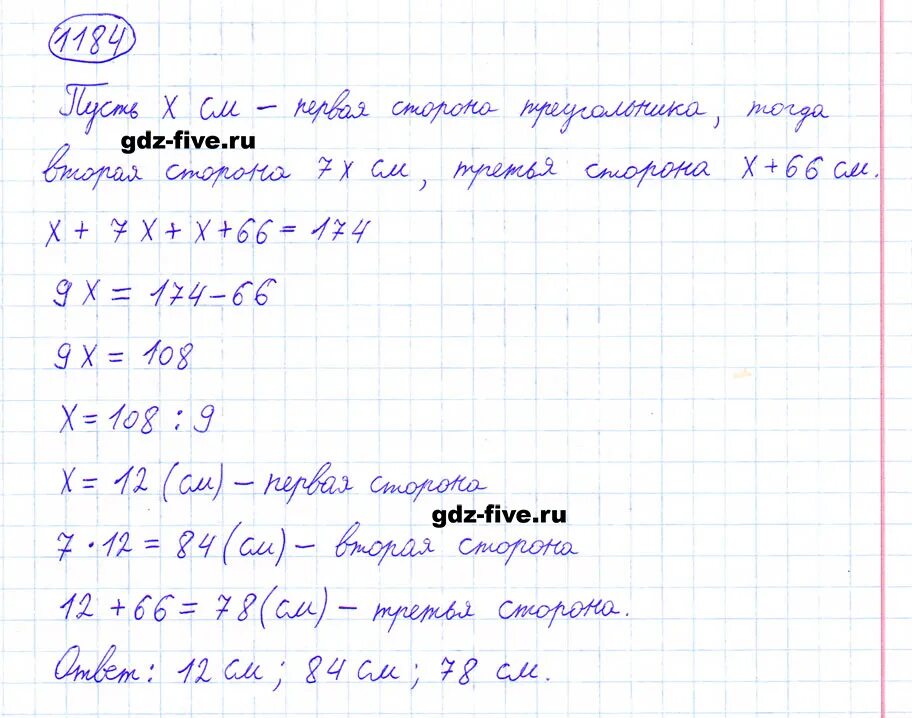 1184
Пусть x см – первая сторона треугольника, тогда
gdz-five.ru
вторая сторона 7x см, третья сторона x+66 см.
x + 7x + x + 66 = 174
9x = 174 – 66
9x = 108
x = 108 : 9
x = 12 (см) – первая сторона
gdz-five.ru
7 · 12 = 84 (см) – вторая сторона
12 + 66 = 78 (см) – третья сторона.
Ответ: 12 см; 84 см; 78 см.